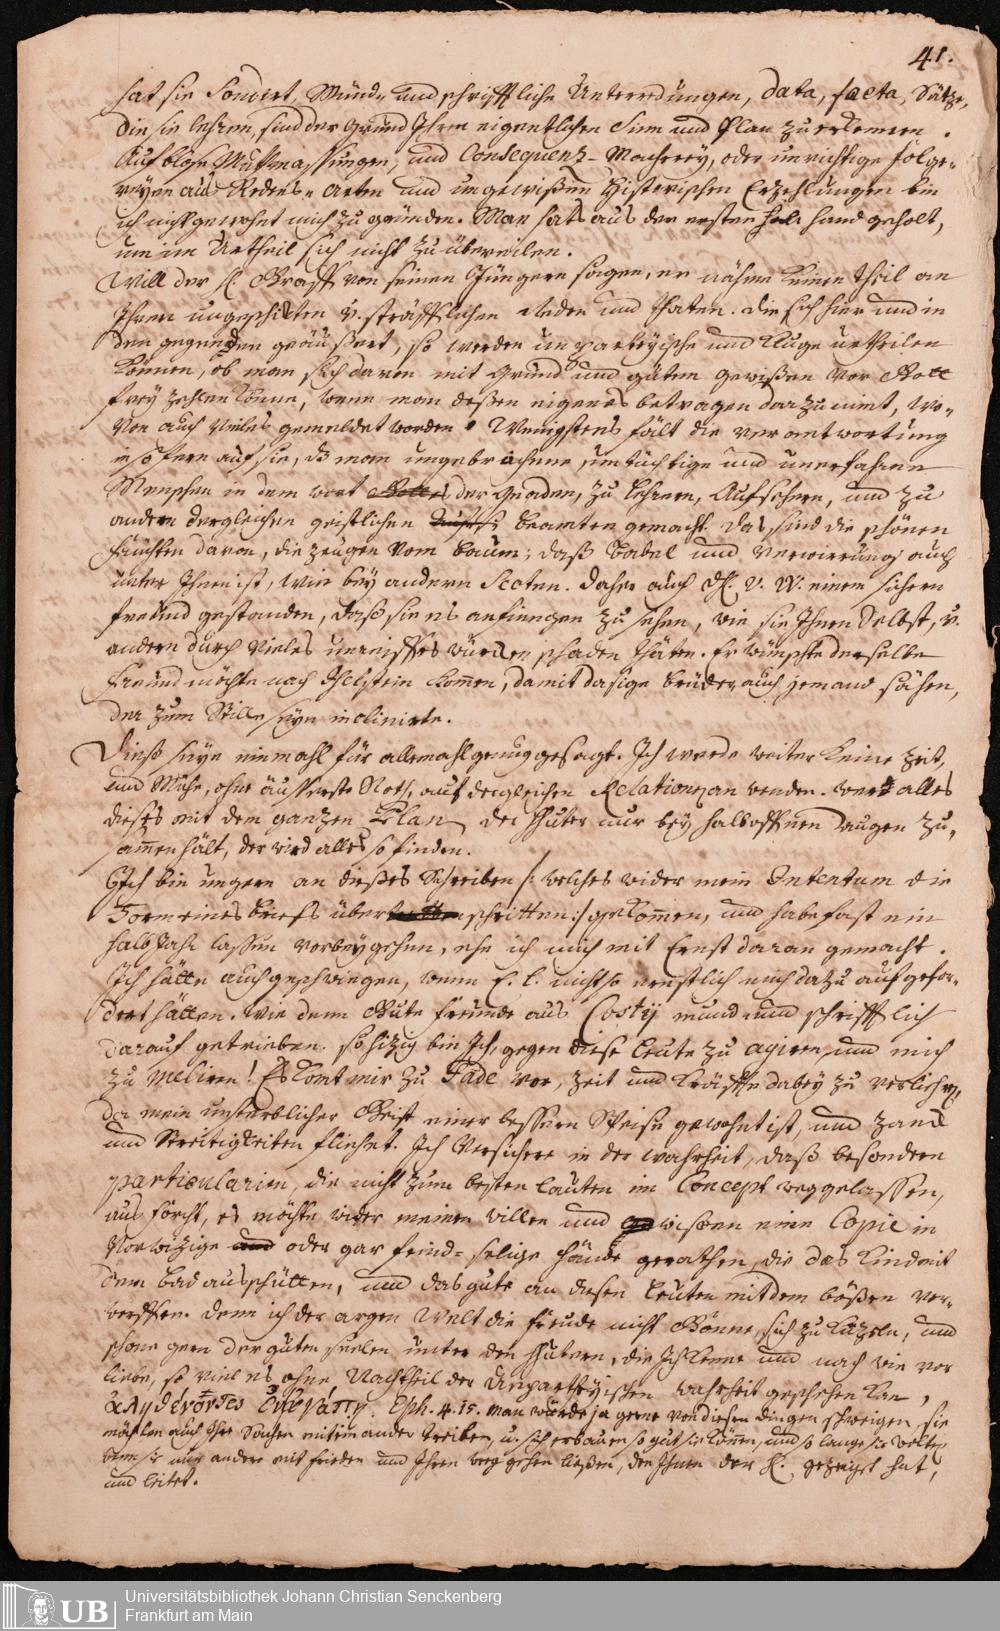 41.
hat sie sondirt, Münd- und schrifftliche Unterredungen, Data, facta, Sätze,
die sie lehren, sind der Grund Ihren eigentlichen Sinn und Plan zu erkennen.
Auf bloße Muthmassungen, und Consequenz-Macherey, oder unrichtige folge-
reyen aus Redens-Arten und ungewißen Historischen Erzehlungen bin
ich nicht gewohnt mich zu gründen. Man hats aus der ersten hand geholt,
um im Urtheil sich nicht zu übereilen.
Will der H. Graff von seinen Jüngern sagen, er nähme keinen theil an
Ihren ungeschickten u. sträfflichen Reden und thaten. die sich hier und in
den gegenden geäußert, so werden unpartheyische und kluge urtheilen
können, ob man sich davon mit Grund und gutem gewißen vor Gott
frey zehlen könne, wenn man deßen eigenes betragen darzu nimt, wo-
von auch vieles gemeldet worden. Wenigstens fält die verantwortung
in so fern auf sie, dß man ungebrochene, untüchtige und unerfahrne
Menschen in dem wort der Gnaden, zu Lehrern, Aufsehern, und zu
andern dergleichen geistlichen beamten gemacht. das sind die schönen
früchten davon, die zeugen vom baum; daß Babel und verwirrung auch
unter Ihnen ist, wie bey andern Secten. daher auch H. v. W. einem sichern
freund gestanden, daß sie es anfiengen zu sehen, wie sie Ihnen Selbst, u.
andern durch vieles unreiffes würden schaden thäten. Er wünschte derselbe
freund möchte nach Holstein kommen, damit dasige brüder auch jemand sähen,
der zum Stille seyn inclinirte.
Dieß seye einmahl für allemahl genug gesagt. Ich werde weiter keine zeit,
und Mühe, ohne äusserste Noth, auf dergleichen Relationen wenden. wer alles
dieses mit dem ganzen Plan der Hüter nur bey halboffnen Augen zu-
sammenhält, der wird alles so finden.
Ich bin ungern an dießes Schreiben /: welches wider mein Intentum die
Form eines briefs überschritten :/ gekommen, und habe fast ein
halb Jahr lassen vorbeygehen, ehe ich mich mit Ernst daran gemacht.
Ich hätte auch geschwiegen, wenn E. L. nicht so ernstlich mich dazu aufgefor-
dert hätten. wie denn Gute freunde aus Costy mund- und schrifftlich
darauf getrieben. so hizig bin Ich, gegen diese leute zu agiren, und mich
zu meliren! Es komt mir zu Fade vor, zeit und kräffte dabey zu verliehren,
da mein unsterblicher Geist einer bessern Speise gewohnt ist, und zanck
und Streitigkeiten fliehet. Ich versichere in der wahrheit, daß besondere
particularien, die nicht zum besten lauten im Concept weggelassen,
aus forcht, es möchte wider meinen willen und wissen eine Copie in
vorwizige oder gar feind-selige hände gerathen, die das kind mit
dem bad ausschütten, und das gute an diesen leuten mit dem bößen ver-
werffen. denn ich der argen Welt die freude nicht Gönne, sich zu kuzeln, und
schone gern der guten seelen unter den Hütern, die Ich kenne und nach wie vor
liebe, so viel es ohne Nachtheil der Unpartheyischen wahrheit geschehen kan,
ἀληθεύοντες ἐν ἀγάπῃ. Eph. 4. 15. man würde ja gerne von diesen dingen schweigen, sie
möchten auch Ihre Sachen miteinander treiben, u. sich erbauen so gut sie können, und so lange sie wolten,
wenn sie nur andere mit frieden und Ihren weg gehen ließen, den Ihnen der H. gezeigt hat,
und leitet.
UB
Universitätsbibliothek Johann Christian Senckenberg
Frankfurt am Main